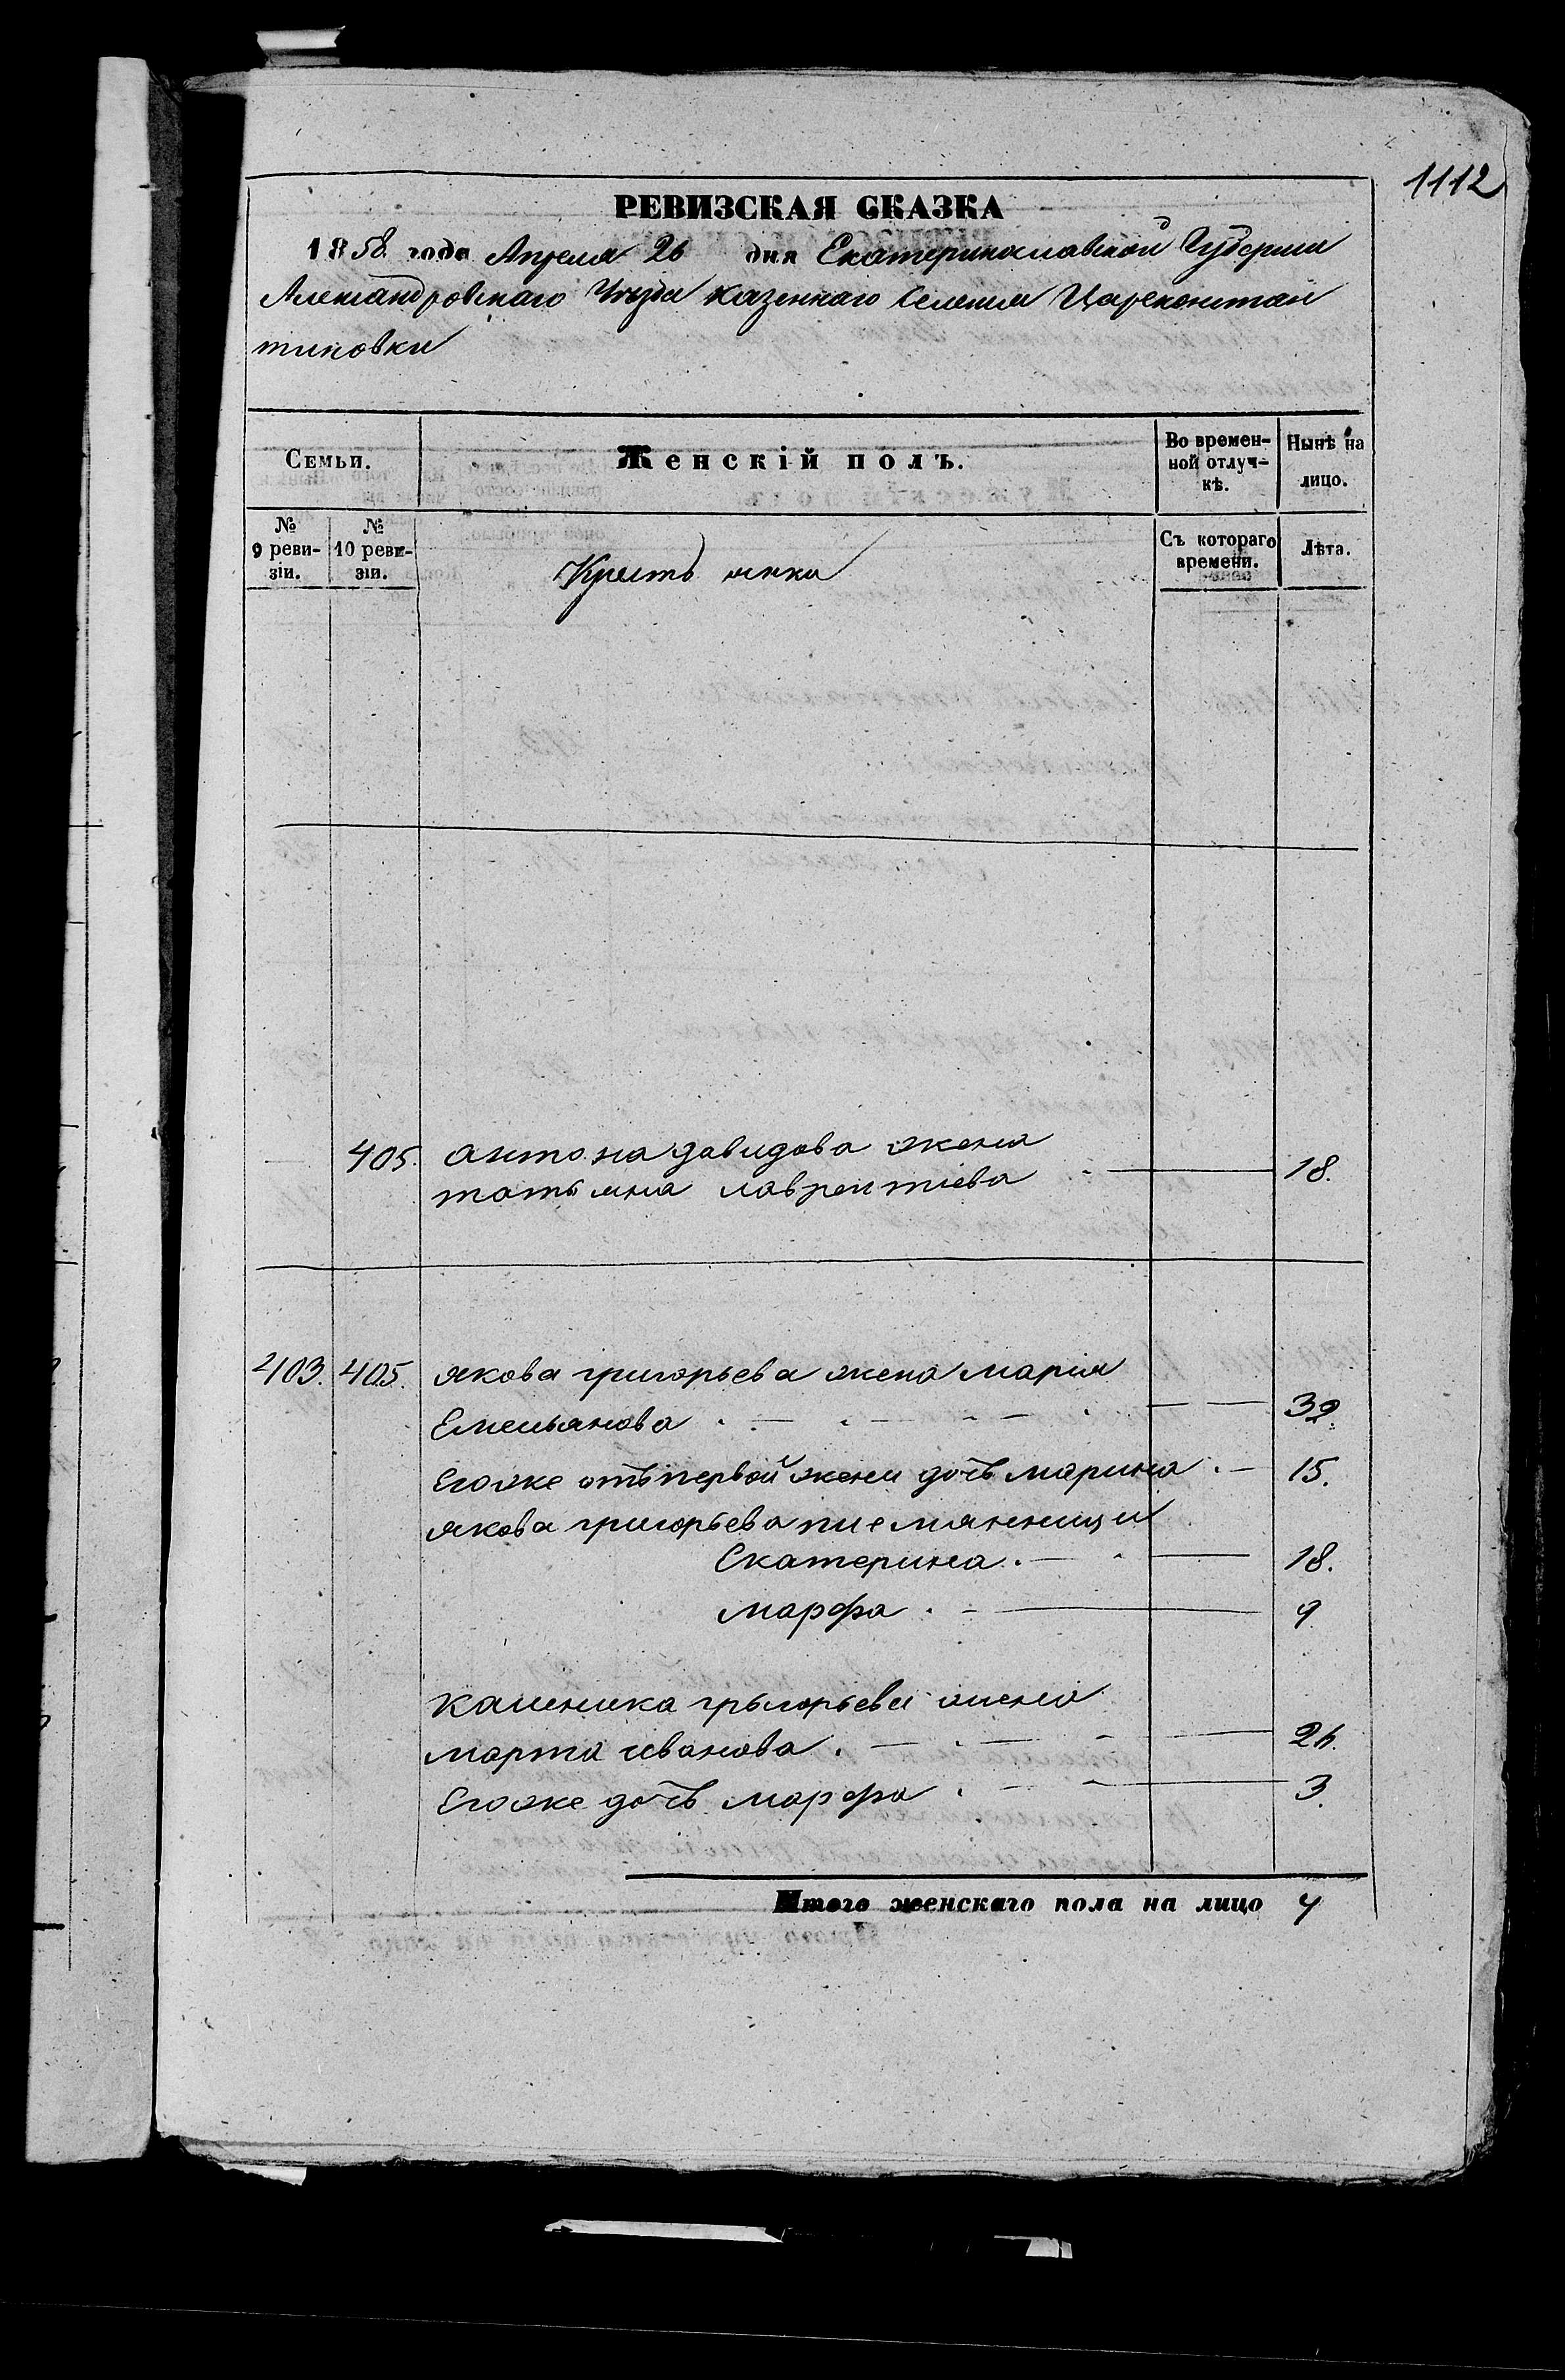 1112
РЕВИЗСКАЯ СКАЗКА
1858 года Апреля 26 дня Екатеринославской Губернии
Александровскаго Уезда казеннаго Селения Цареконстан
тиновки
Семьи.
Женскій полъ.
Во времен-
ной отлуч-
кѣ.
Нынѣ на
лицо.
№
9 реви-
зіи.
№
10 реви-
зіи.
Крестьянки
Съ котораго
времени.
Лѣта.
405. антона давидова жена
татьяна лаврентіева 18.
403. 405. якова григорьева жена марія
Емельянова 39.
Егоже отъ первой жени дочь марина 15.
якова григорьева племянници
Екатерина 18.
марфа 9
калиника грыгорьева жена
марта иванова
Егоже дочь марфа 3.
Итого женскаго пола на лицо